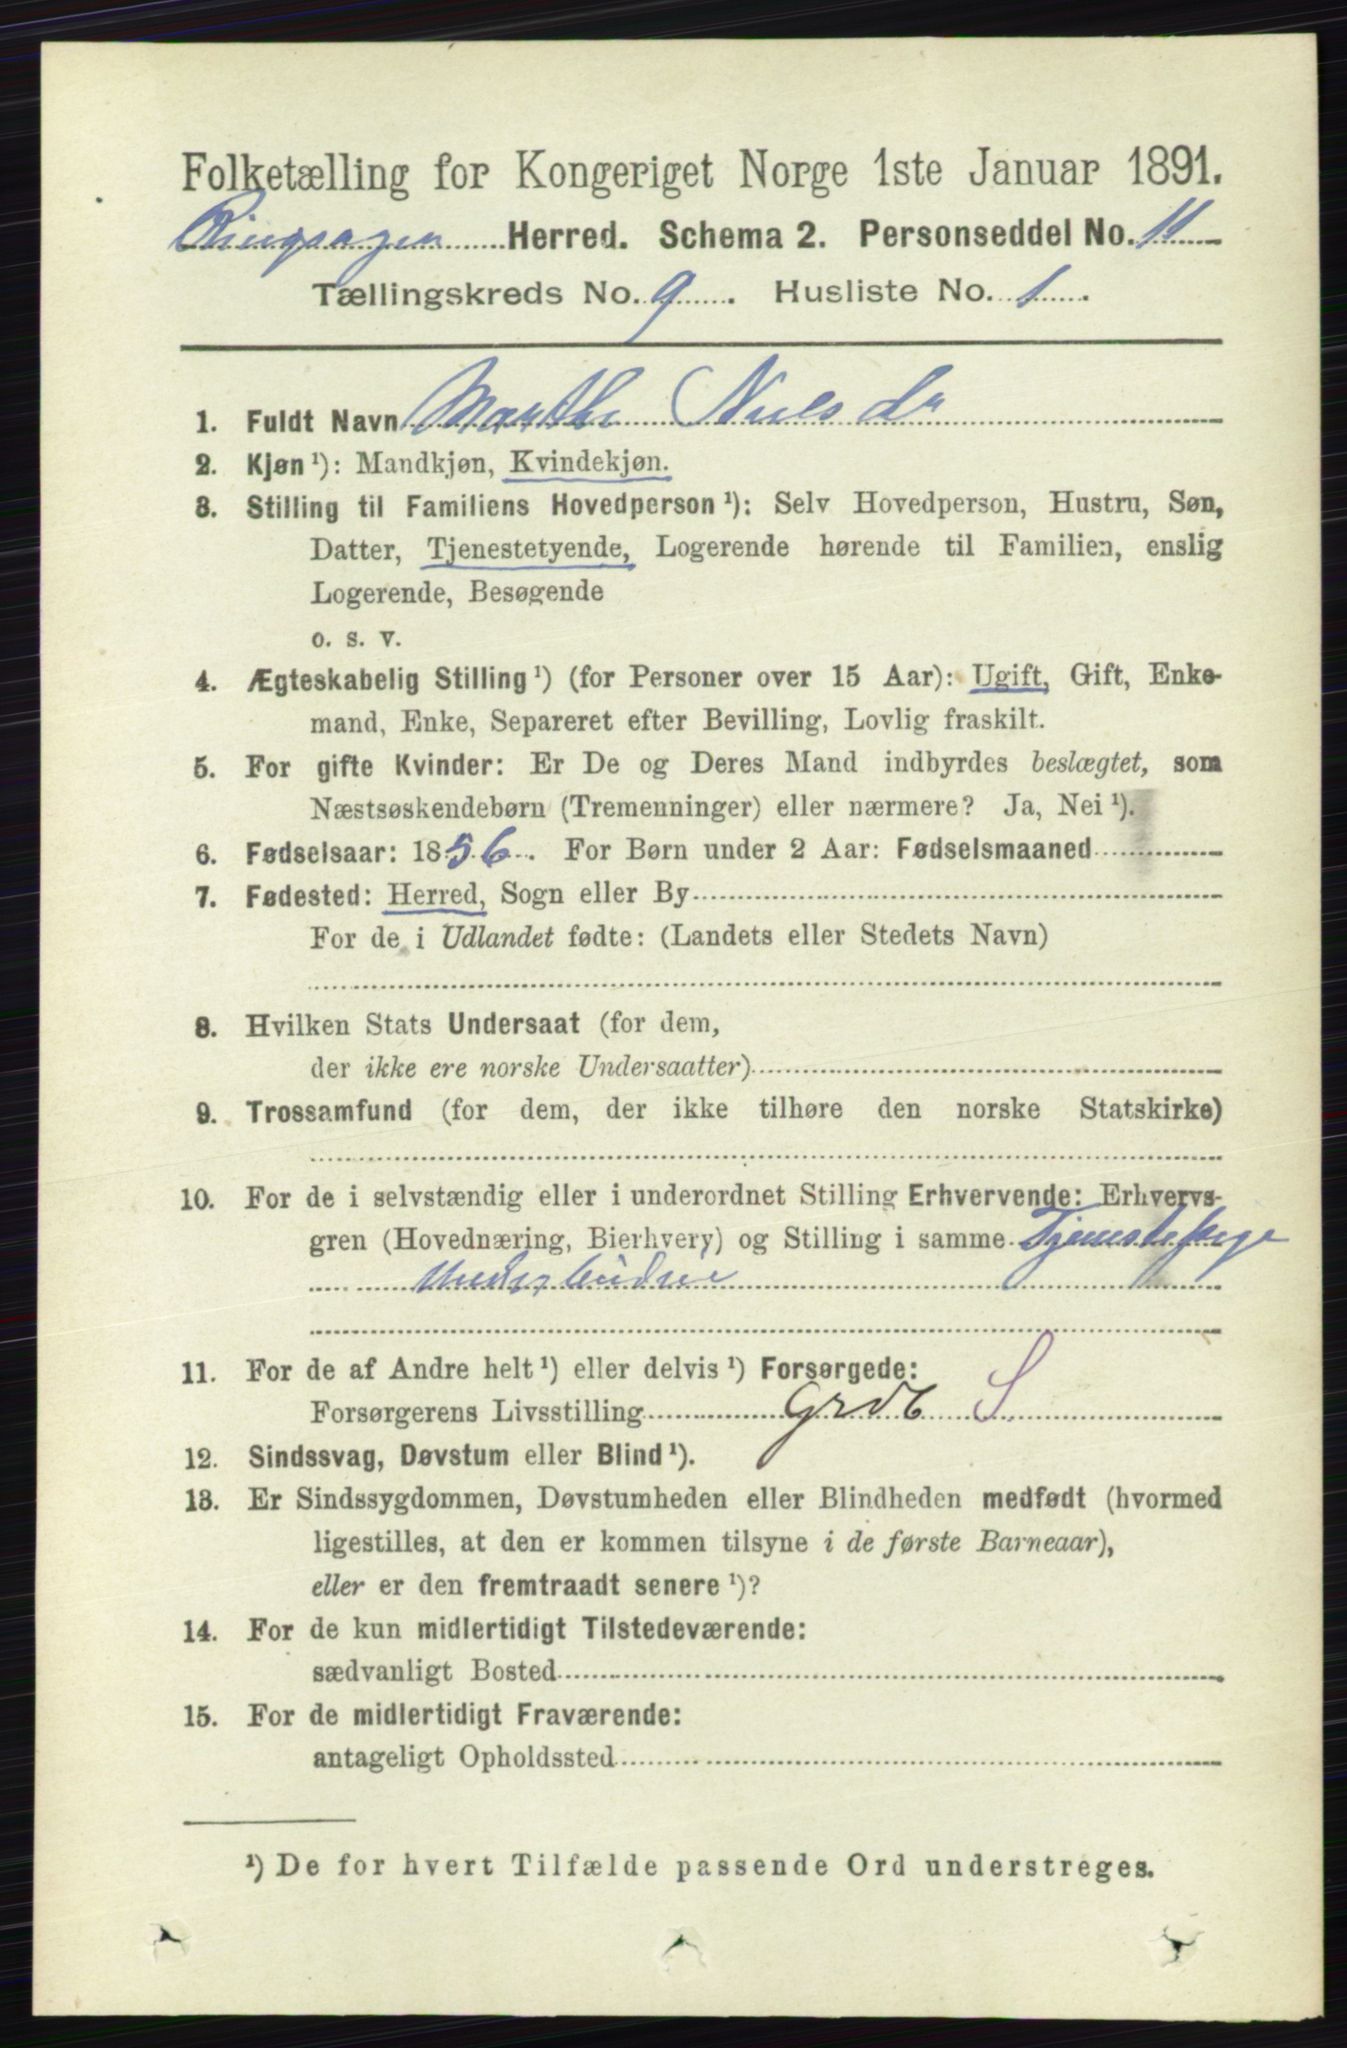 Folketælling for Kongeriget Norge 1ste Januar 1891.
Ringsager Herred. Schema 2. Personseddel No. 11
Tællingskreds No. 9. Husliste No. 1.
1. Fuldt Navn Marthe Nilsdr
2. Kjøn ¹): Mandkjøn, Kvindekjøn.
3. Stilling til Familiens Hovedperson ¹): Selv Hovedperson, Hustru, Søn,
Datter, Tjenestetyende, Logerende hørende til Familien, enslig
Logerende, Besøgende
o. s. v.
4. Ægteskabelig Stilling ¹) (for Personer over 15 Aar): Ugift, Gift, Enke-
mand, Enke, Separeret efter Bevilling, Lovlig fraskilt.
5. For gifte Kvinder: Er De og Deres Mand indbyrdes beslægtet, som
Næstsøskendebørn (Tremenninger) eller nærmere? Ja, Nei ¹).
6. Fødselsaar: 1856. For Børn under 2 Aar: Fødselsmaaned
7. Fødested: Herred, Sogn eller By
For de i Udlandet fødte: (Landets eller Stedets Navn)
8. Hvilken Stats Undersaat (for dem,
der ikke ere norske Undersaatter)
9. Trossamfund (for dem, der ikke tilhøre den norske Statskirke)
10. For de i selvstændig eller i underordnet Stilling Erhvervende: Erhvervs-
gren (Hovednæring, Bierhverv) og Stilling i samme Tjenestepige
11. For de af Andre helt ¹) eller delvis ¹) Forsørgede:
Forsørgerens Livsstilling Grdb S
12. Sindssvag, Døvstum eller Blind ¹).
13. Er Sindssygdommen, Døvstumheden eller Blindheden medfødt (hvormed
ligestilles, at den er kommen tilsyne i de første Barneaar),
eller er den fremtraadt senere ¹)?
14. For de kun midlertidigt Tilstedeværende:
sædvanligt Bosted
15. For de midlertidigt Fraværende:
antageligt Opholdssted
¹) De for hvert Tilfælde passende Ord understreges.